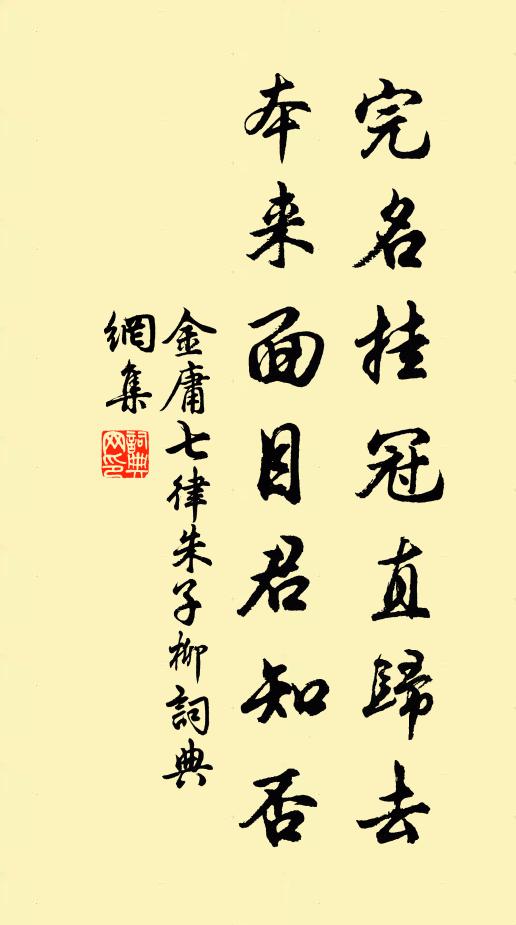 完名挂冠直歸去
本来面目君知否
金庸七律朱子柳詞典
網集
詞典網印